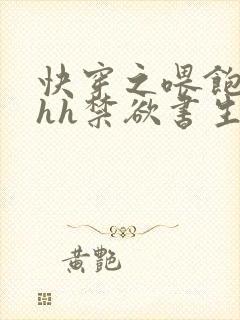 快穿之喂飽
hh禁欲書生
黄艷